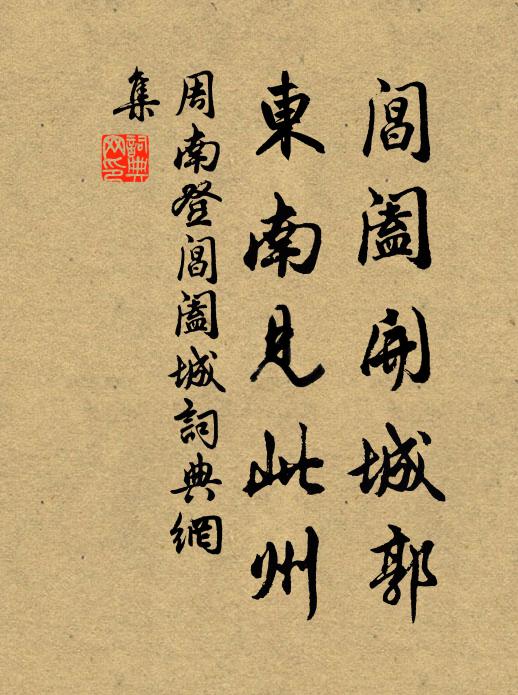 閶闔開城郭
東南見此州
周南登閶闔城詞典網
集
詞典网印